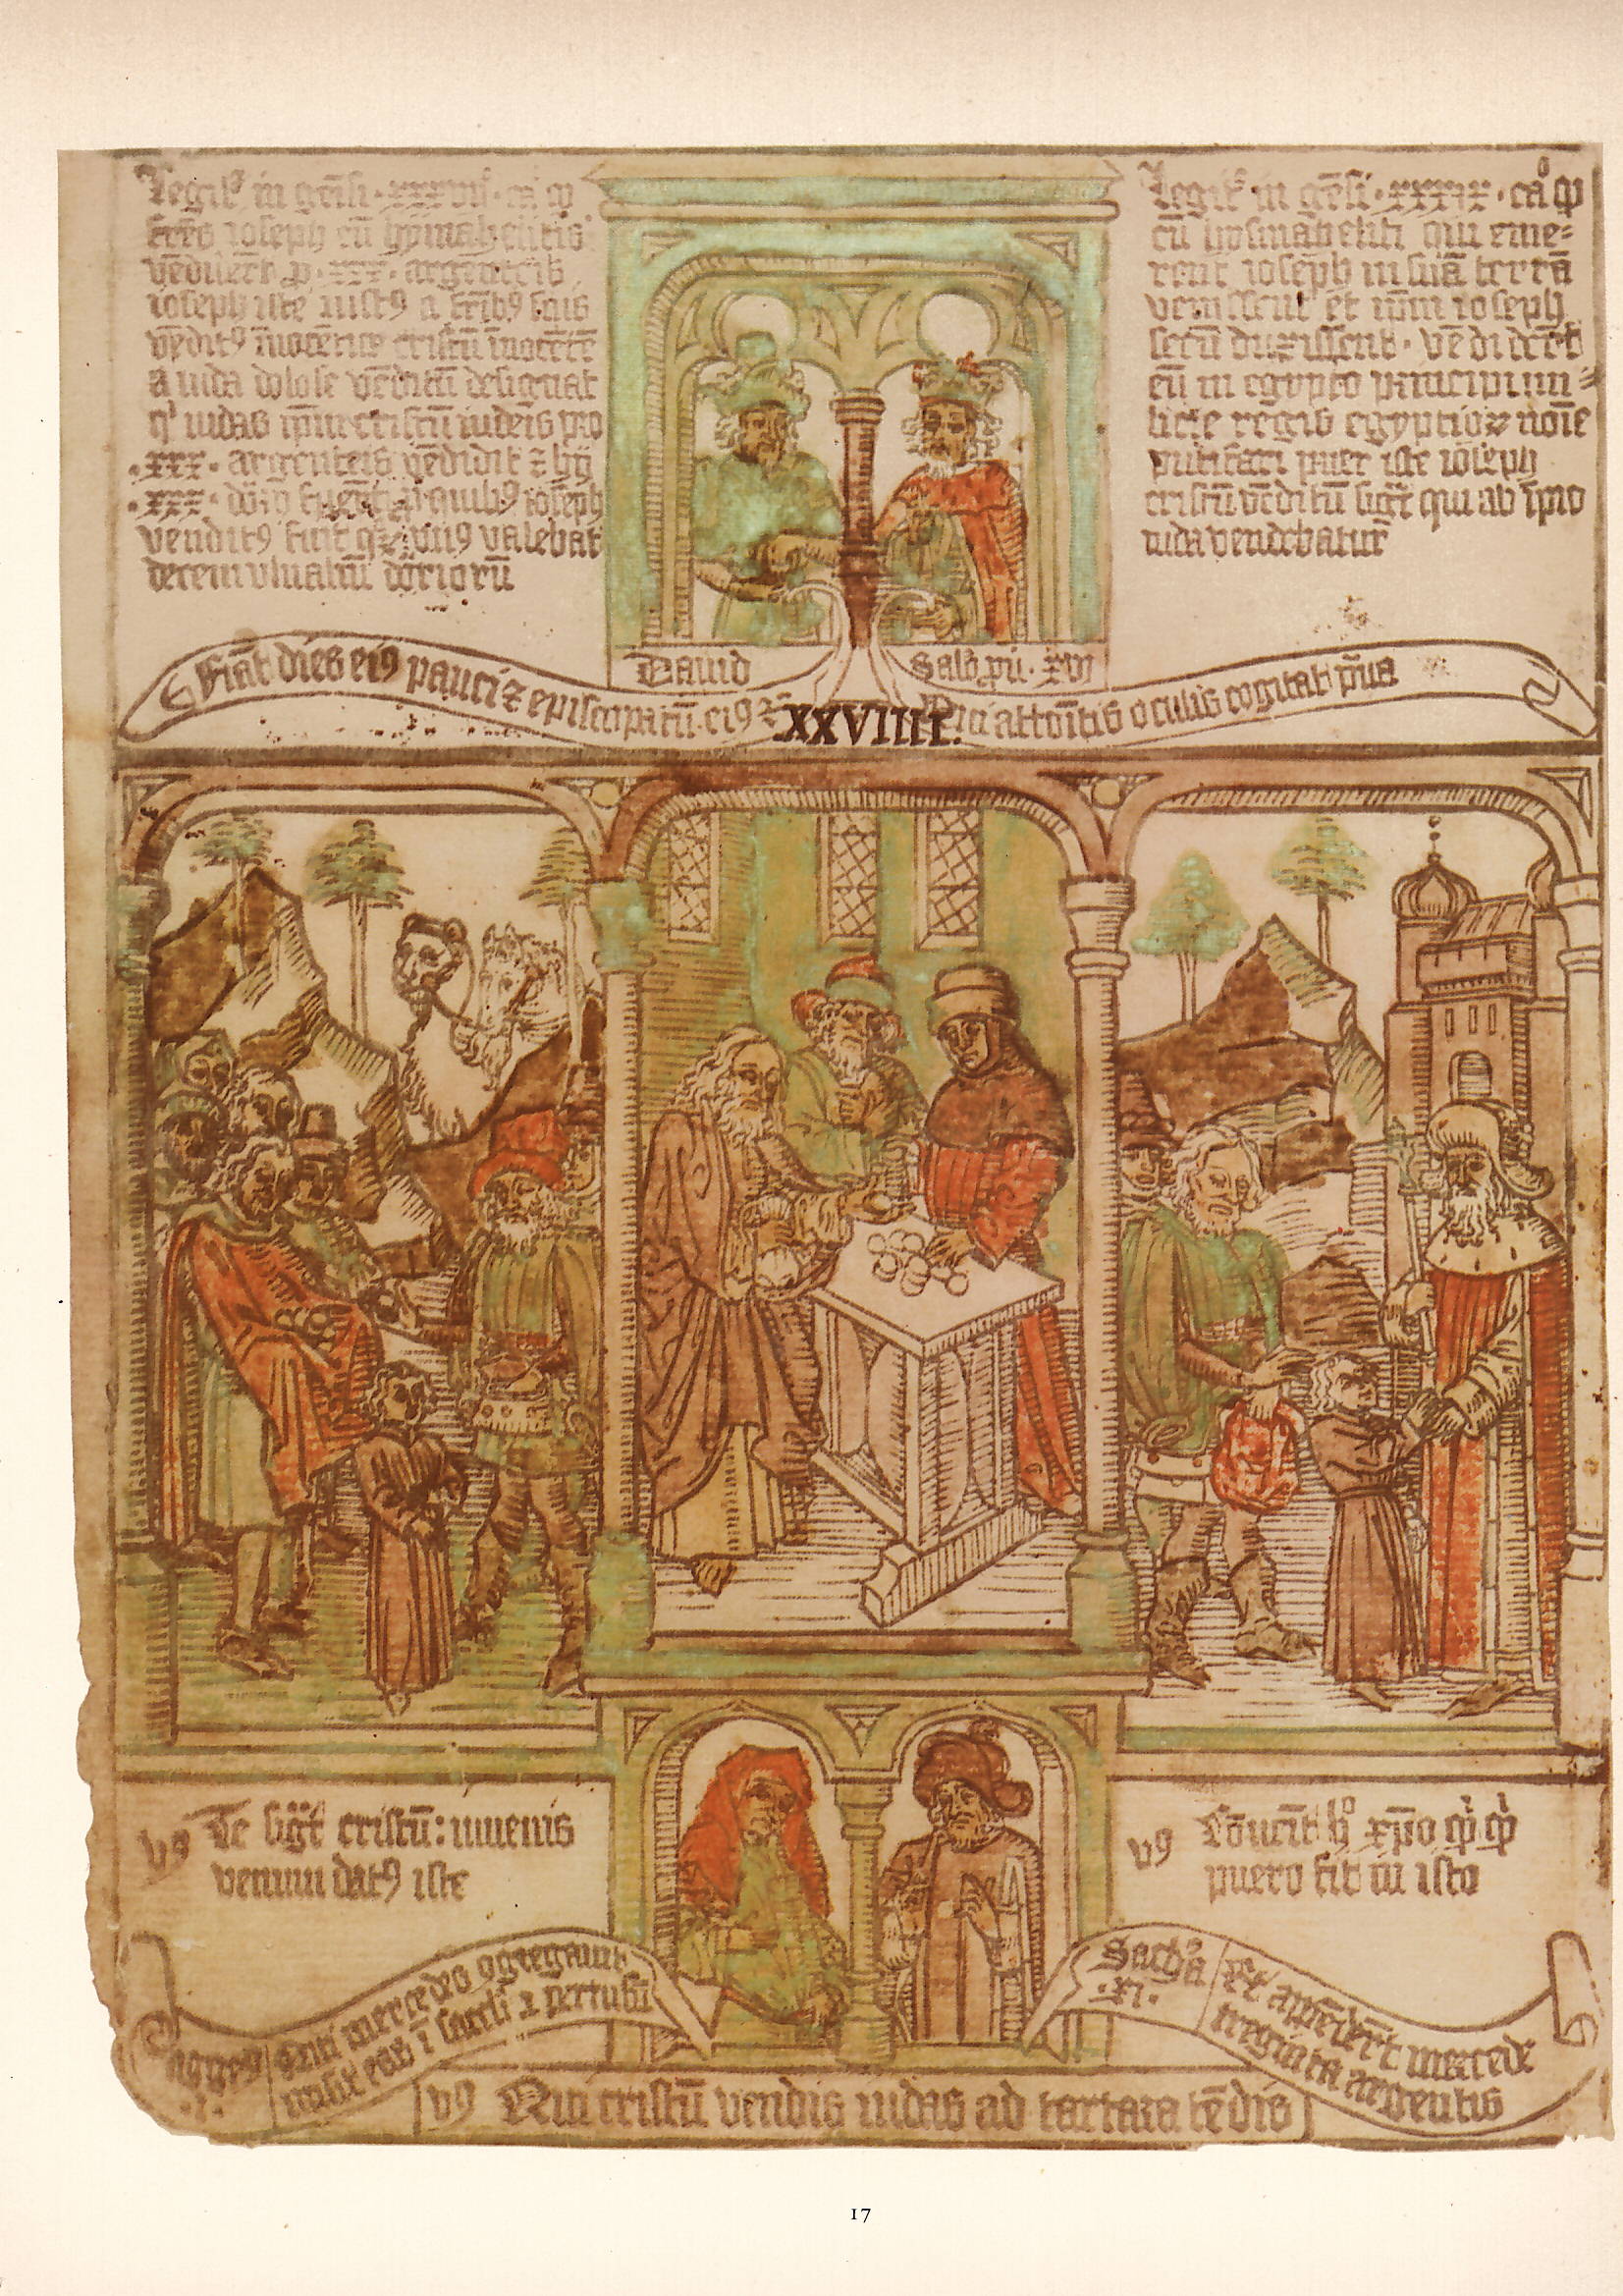 Legit² in gēn̄si · xxxvii° · ca° ꝙ
fr̄es ioseph cū hysmahelitis
vēdiderūt ꝓ · xxx · argēteis
ioseph iste iust⁹ a frib⁹ suis
vēdit⁹ īnocēntē cristū īnocētē
a iuda dolose vēditū designat
iudas cristū iudeis pro
· xxx · argenteis vēdidit ⁊ hij
· xxx · quib⁹ ioseph
vendit⁹ fuit vn⁹ valebat
decem
Legit² in gēsi · xxxix · ca° ꝙ
cū hysmaheliti qui eme=
rent ioseph in suā terrā
venissent et ioseph
secū duxissent · vēdiderūt
eū in egypto principi mi=
licie regis egyptioꝝ noīe
putifari puer iste ioseph
cristū vēditū sigt̄ qui ab īpio
iuda vendebatur
Dauid
Salo ꝓu · xvi
Fiāt dies ei⁹ pauci ⁊ episcopatū · ei⁹ ⁊
Qui attoītis oculis cogitat p̄ua
XXVIIII.
v⁹ Te sigt̄ cristū : iuuenis
venun dat⁹ iste
v⁹ Cōuēit h° xp̄o qͥ qͥ
puero fit in isto
Aggeus
· i ·
Qui mercedes ɔgregauit
misit eas ī saccū ꝑtusū
Sacha
· xi ·
Et appēder̄t mercedē
treginta argentis
v⁹ Qui cristū vendis iudas ad tartara tēdis
17